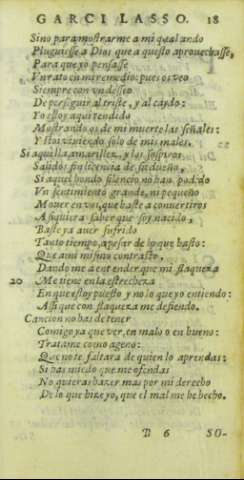 GARCI LASSO. 18
Sino para mostrarme a mi qual ando
Pluguiesse a Dios que a questo aprouechasse,
Para que yo pensasse
Vn rato en mi remedio: pues os veo
Siempre con vn desseo
De perseguir al triste, y al caydo:
Yo estoy aqui tendido
Mostrandoos de mi muerte las señales:
Y estoi viuiendo solo de mis males.
Si aquella amarillez, y los sospiros
Salidos sin licencia de su dueño,
Si aquel hondo silencio no han podido
Vn sentimiento grande, ni pequeño
Mouer en vos, que baste a conuertiros
A siquiera saber que soy nacido,
Baste ya auer sufrido
Tanto tiempo, apesar de lo que basto:
Que a mi mismo contrasto,
Dando me a entender que mi flaqueza
20 Me tiene en la estrecheza
En que estoy puesto y no lo que yo entiendo:
Assi que con flaqueza me defiendo.
Cancion no has de tener
Comigo ya que ver, en malo o en bueno:
Tratame como ageno:
Que no te faltara de quien lo aprendas:
Si has miedo que me ofendas
No quieras hazer mas por mi derecho
De lo que hize yo, que el mal me he hecho.
B 6 SO-